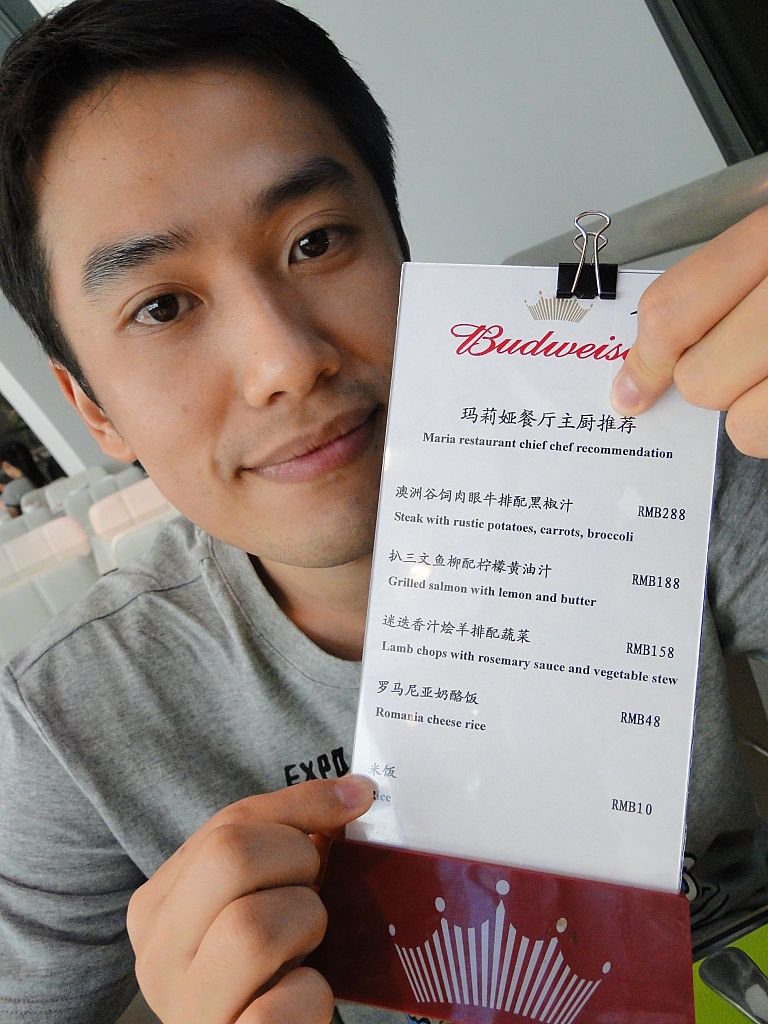 Budweis
玛莉娅餐厅主厨推荐
Maria restaurant chief chef recommendation
澳洲谷饲肉眼牛排配黑椒汁 RMB288
Steak with rustic potatoes, carrots, broccoli
扒三文鱼柳配柠檬黄油汁 RMB188
Grilled salmon with lemon and butter
迷迭香汁烩羊排配蔬菜 RMB158
Lamb chops with rosemary sauce and vegetable stew
罗马尼亚奶酪饭 RMB48
Romania cheese rice
米饭 RMB10
Rice
EXPO